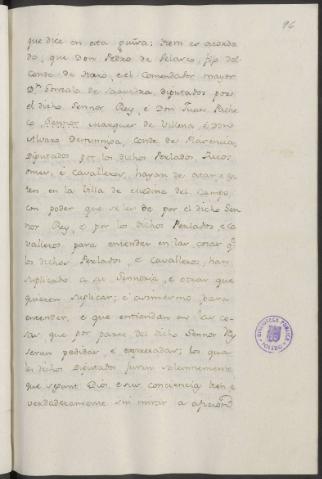 96
que dice en esta guisa: Item es acorda
do, que Don Pedro de Velasco, fijo del
Conde de Haro, e el Comendador mayor
Dn Gonzalo de Saavedra, diputados por
el dicho Sennor Rey, e Don Juan Pache
co Marques de Villena, e Don
Alvaro Destunniga, Conde de Plasencia,
Diputados por los dichos Perlados, Ricos
omes, e cavalleros, hayan de estar e es
ten en la Villa de Medina del Campo,
con poder que se les de por el dicho Sen
nor Rey, e por los dichos Perlados, e Ca
valleros, para entender en las cosas q.e
los dichos Perlados, e Cavalleros, han
suplicado a su Sennoria, e otras que
quieren suplicar; e asimesmo para
entender, e que entiendan en las co
sas, que por parte del dicho Sennor Rey
seran pedidas, e expresadas; los qua
les dichos Diputados juren solennemente
que segunt Dios, e sus conciencia bien e
verdaderamente sin mirar a aficion
BIBLIOTECA PUBLICA
TOLEDO